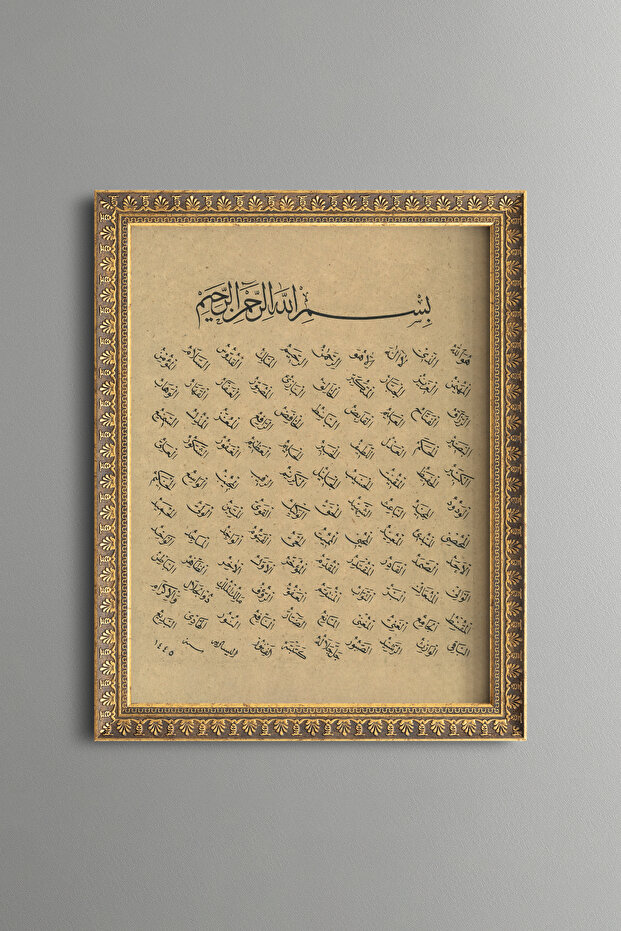 بِسْمِ اللهِ الرَّحْمٰنِ الرَّحِيْمِ
هو الله الذى لا اله الا هو الرحمن الرحيم الملك القدوس السلام المؤمن
المهيمن العزيز الجبار المتكبر الخالق البارئ المصور الغفار القهار الوهاب
الرزاق الفتاح العليم القابض الباسط الخافض الرافع المعز المذل السميع
البصير الحكم العدل اللطيف الخبير الحليم العظيم الغفور الشكور العلى
الكبير الحفيظ المقيت الحسيب الجليل الكريم الرقيب المجيب الواسع الحكيم
الودود المجيد الباعث الشهيد الحق الوكيل القوى المتين الولى الحميد
المحصى المبدئ المعيد المحيى المميت الحى القيوم الواجد الماجد الواحد
الاحد الصمد القادر المقتدر المقدم المؤخر الاول الاخر الظاهر الباطن
الوالى المتعال البر التواب المنتقم العفو الرؤف مالك الملك ذو الجلال والاكرام
المقسط الجامع الغنى المغنى المانع الضار النافع النور الهادى البديع
الباقى الوارث الرشيد الصبور جل جلاله كتبه سنه ١٤٤٥